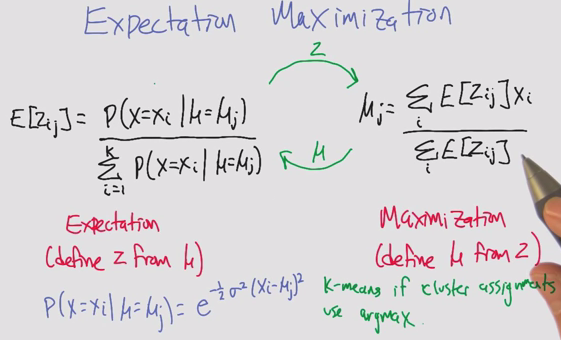 Expectation Maximization
z
E[Zij] = P(x=xi | μ=μj) / Σ i=1 k P(x=xi | μ=μj)
μj = Σi E[Zij] xi / Σi E[Zij]
μ
Expectation
(define z from μ)
Maximization
(define μ from z)
P(x=xi | μ=μj) = e^(-1/2 σ² (xi-μj)²)
K-means if cluster assignments
use argmax.